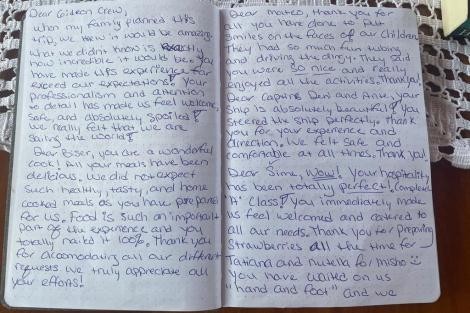 Dear Gideon Crew,
When my family planned this
trip, we knew it would be amazing.
What we didn't know is exactly
how incredible it would be. You
have made this experience far
exceed our expectations! Your
professionalism and attention
to detail has made us feel welcome,
safe, and absolutely spoiled!
We really felt that we are
sailing the world!
Dear Boser, you are a wonderful
cook! All your meals have been
delicious. We did not expect
such healthy, tasty, and home
cooked meals as you have prepared
for us. Food is such an important
part of the experience and you
totally nailed it 100%. Thank you
for accomodating all our different
requests we truly appreciate all
your efforts!
Dear Mateo, thank you for
all you have done to put
smiles on the faces of our children.
They had so much fun tubing
and driving the dingy. They said
you were so nice and really
enjoyed all the activities. Thank you!
Dear Captains Deni and Ante, your
ship is absolutely beautiful! You
steered the ship perfectly. Thank
you for your experience and
direction. We felt safe and
comfortable at all times. Thank you!
Dear Sime, Wow! Your hospitality
has been totally perfect! Complete
"A" Class! You immediately made
us feel welcomed and catered to
all our needs. Thank you for preparing
Strawberries all the time for
Tatiana and nutella for Misho
You have waited on us
"hand and foot" and we